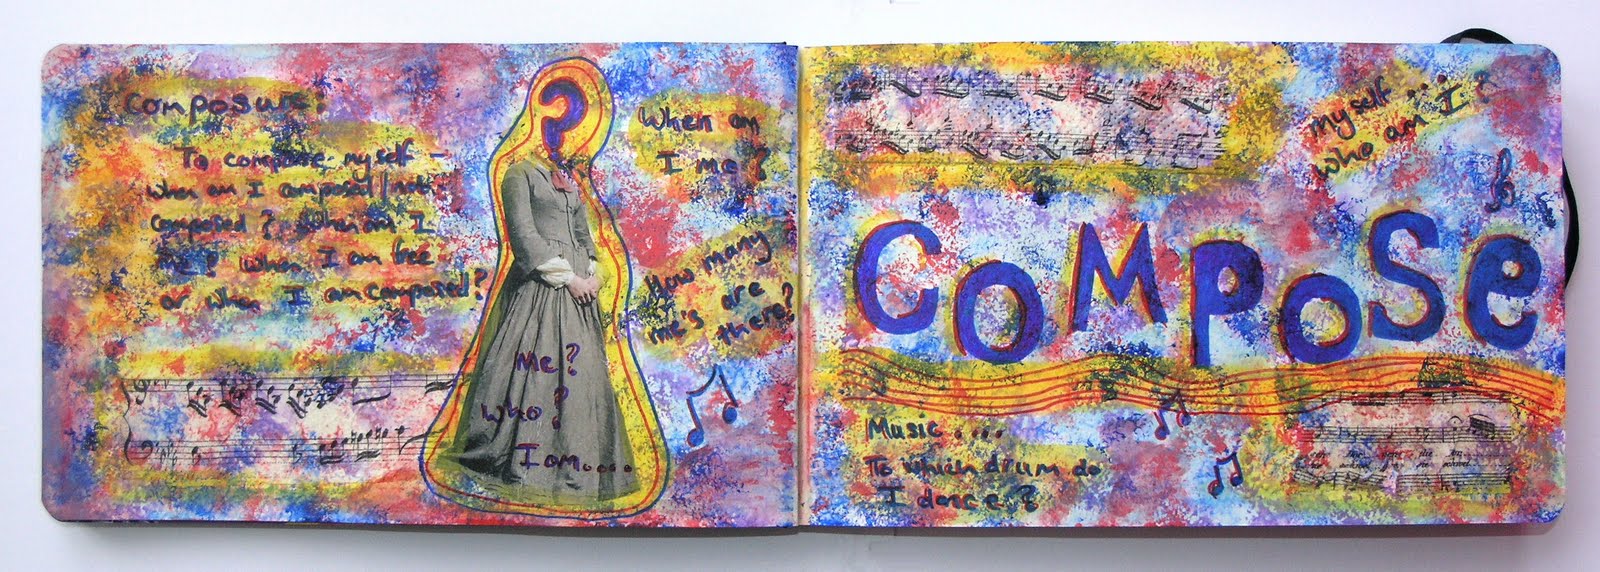 Composure:
To compose myself -
when am I composed / not
composed? When am I
me? When I am free
or when I am composed?
When am
I me?
How many
me's are
there?
Me?
Who?
I am....
Myself...
who am I?
COMPOSe
Music....
To which drum do
I dance?